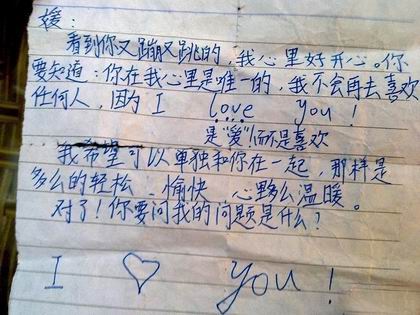 媛：
看到你又蹦又跳的，我心里好开心。你
要知道：你在我心里是唯一的，我不会再去喜欢
任何人，因为 I love you！
是“爱”！而不是喜欢
我希望可以单独和你在一起，那样是
多么的轻松、愉快 心里多么温暖。
对了！你要问我的问题是什么？
I ♡ you！